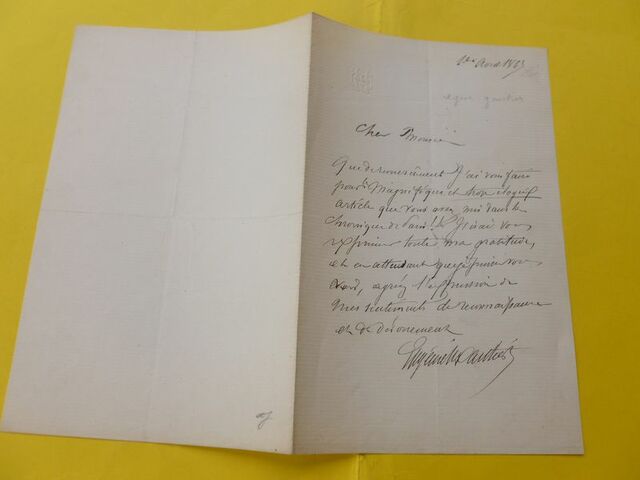 Avril 1863
gautier
Cher Monsieur
Que de remerciements j'ai vous faire
pour le magnifique et trop
article que vous avez mis dans la
chronique de Paris! J'irai vous
exprimer toute ma gratitude,
et en attendant que je puisse vous
agréez l'expression de
mes sentiments de reconnaissance
et de dévouement
Eugène Gautier